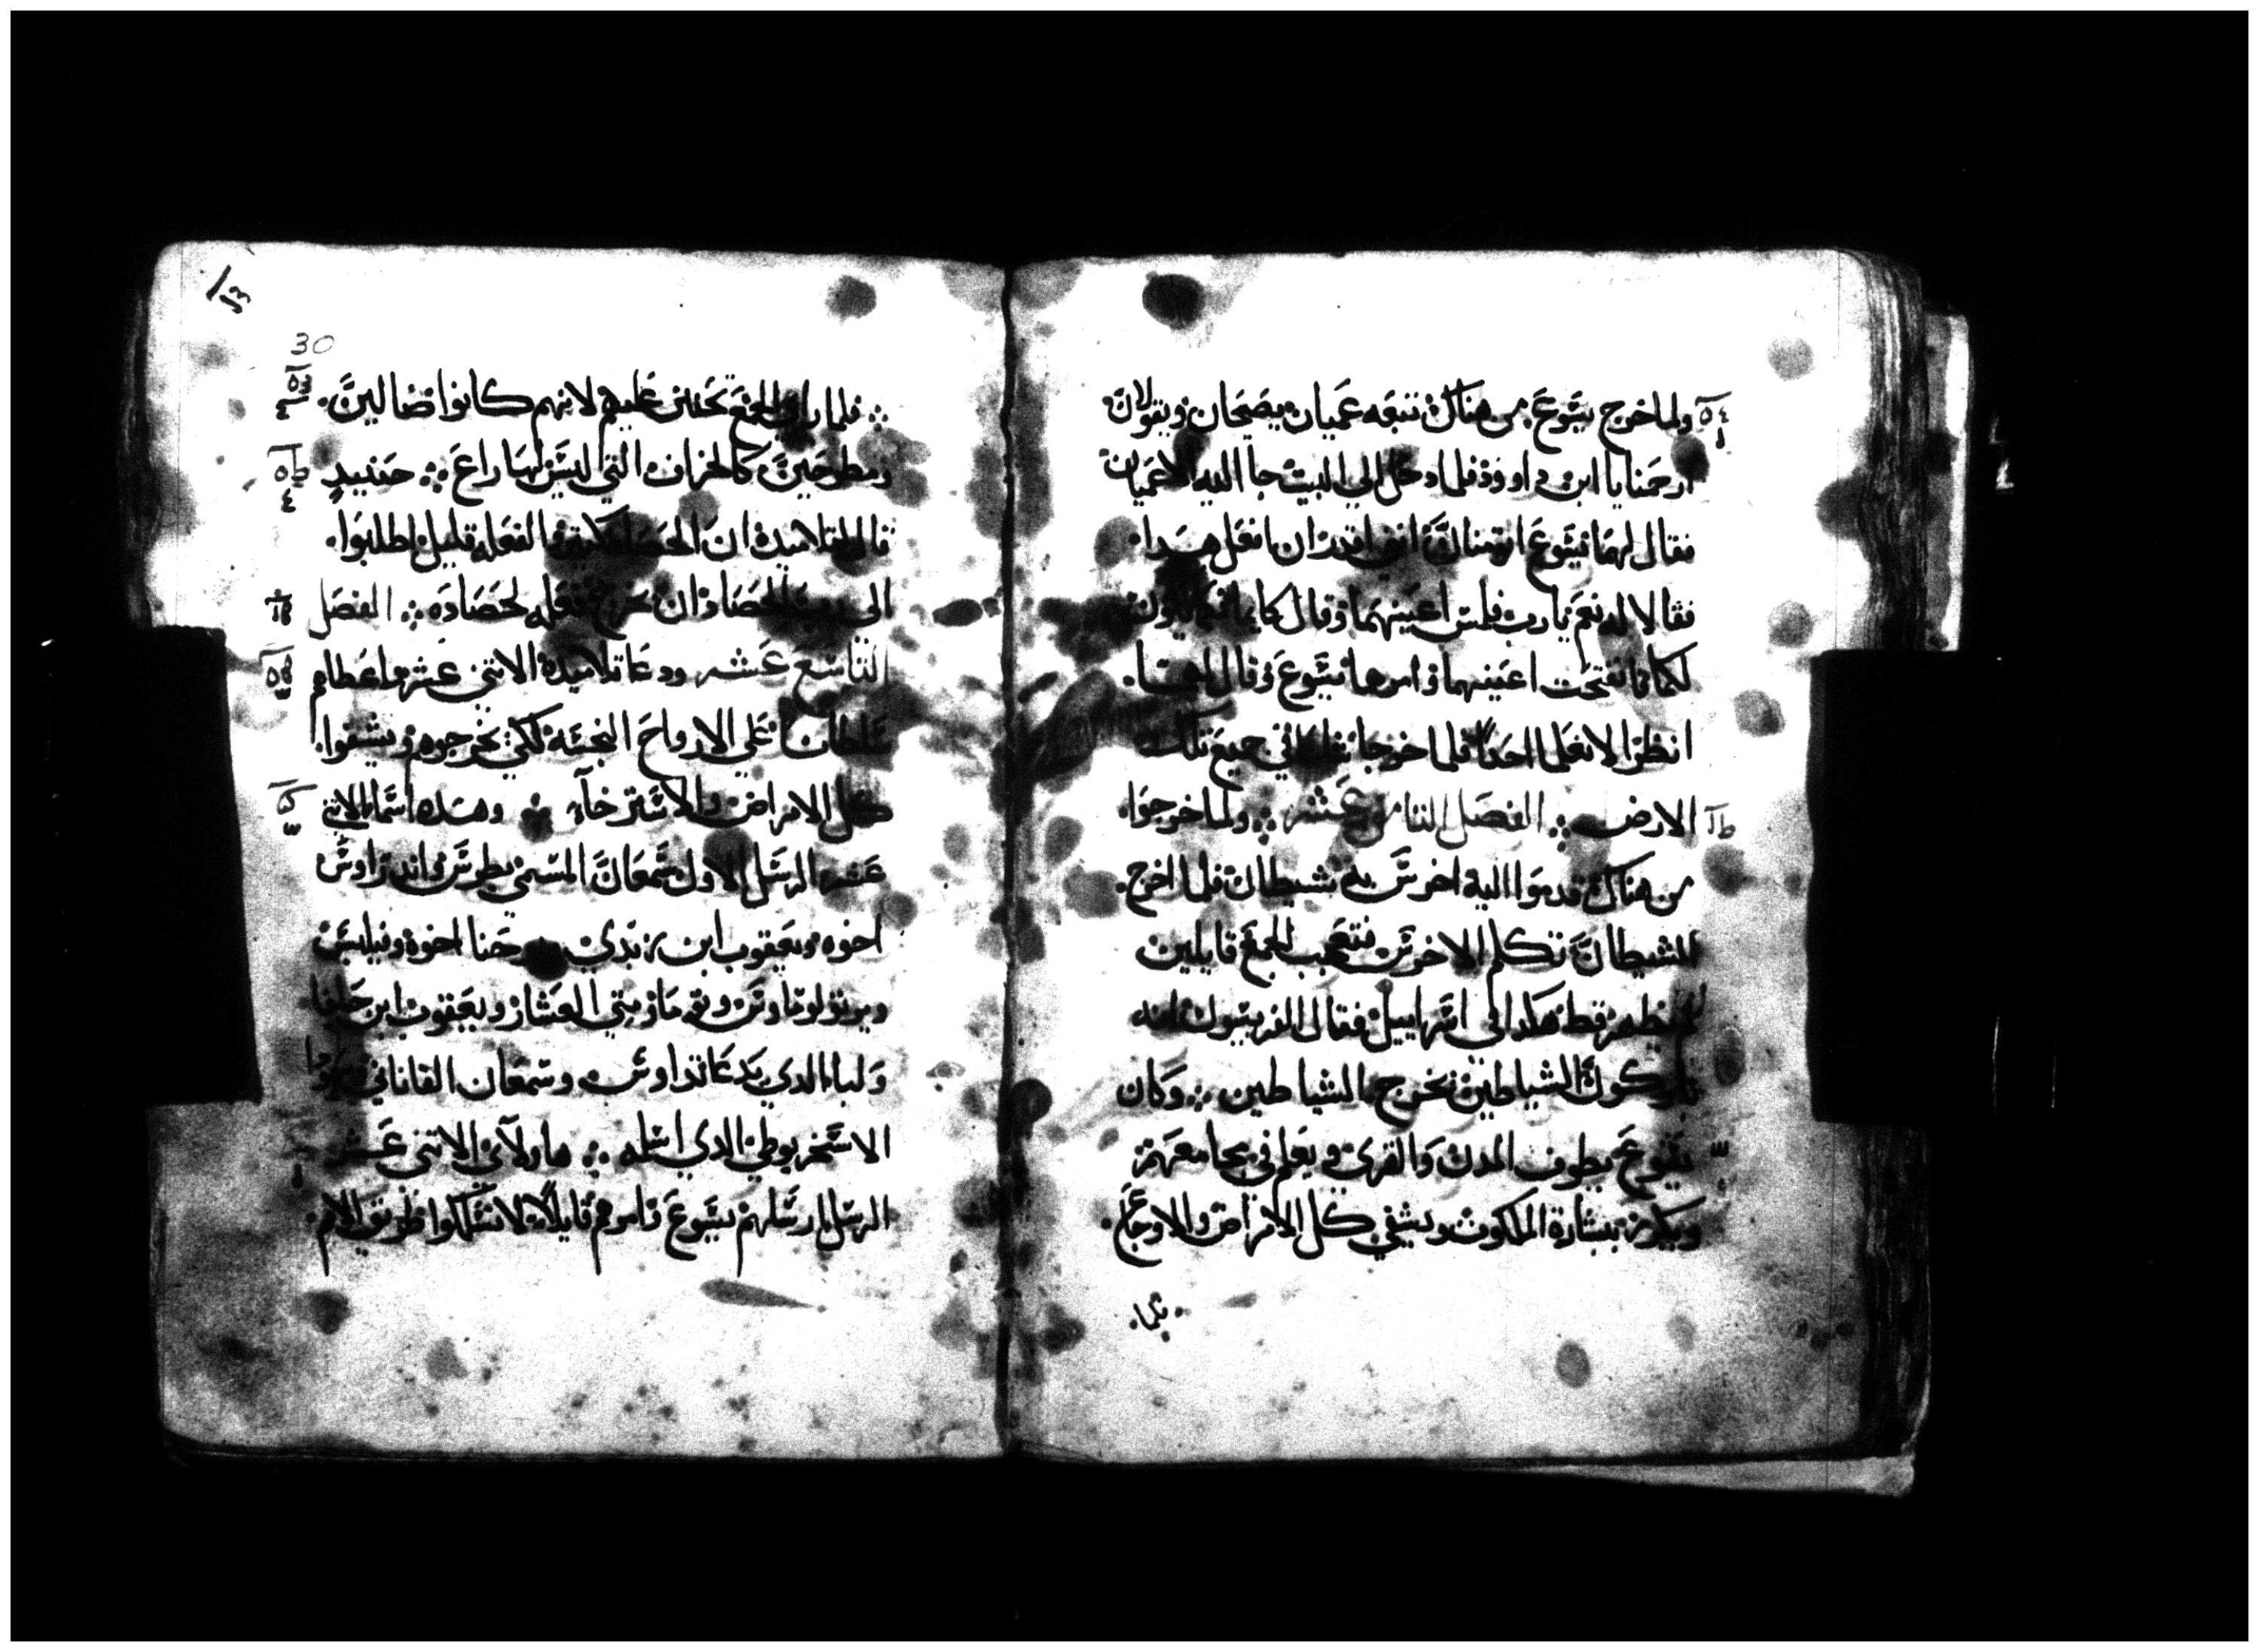 ولما خرج يسوع من هناك تبعه عميان يصيحان ويقولان
ارحمنا يا ابن داوود فلما دخل الي البيت جا اليه الاعميان
فقال لهما يسوع اتومنان انني اقدر ان افعل هدا
فقالا له نعم يارب فلمس اعينهما وقال كايمانكما يكون
لكما فانفتحت اعينهما وامرهما يسوع وقال لهما
انظرا لا يعلم احدا فلما خرجا في جميع تلك
الارض ܀ الفصل التامن عشر ܀ ولما خرجوا
من هناك قدموا اليه اخرس به شيطان فلما اخرج
الشيطان تكلم الاخرس فتعجب الجمع قايلين
لم يظهر قط هكدا في اسراييل فقال الفريسيون انه
باركون الشياطين يخرج الشياطين ܀ وكان
يسوع يطوف المدن والقري ويعلم في مجامعهم
ويكرز ببشارة الملكوت ويشفي كل الامراض والاوجاع
فلما
30
܀ فلما راي الجمع تحنن عليهم لانهم كانوا ضالين
ومطروحين كالخراف التي ليس لها راع ܀ حينيد
قال لتلاميده ان الحصاد كتير والفعله قليل اطلبوا
الي رب الحصاد ان يخرج فعله لحصاده ܀ الفصل
التاسع عشر ودعا تلاميده الاتني عشر واعطاهم
سلطانا علي الارواح النجسه لكي يخرجوهم ويشفوا
كل الامراض والاسترخآء ܀ وهده اسما الاتني
عشر الرسل الاول سمعان المسمي بطرس واندراوس
اخوه ويعقوب ابن زبدي ويوحنا اخوه وفيلبس
وبرتولوماوس وتوما ومتي العشار ويعقوب ابن حلفا
ولبا الدي يدعا تداوس وسمعان القاناني ويهودا
الاسخريوطي الدي اسلمه ܀ هاولآي الاتني عشر
الرسل ارسلهم يسوع وامرهم قايلا لا تسلكوا طريق الامم